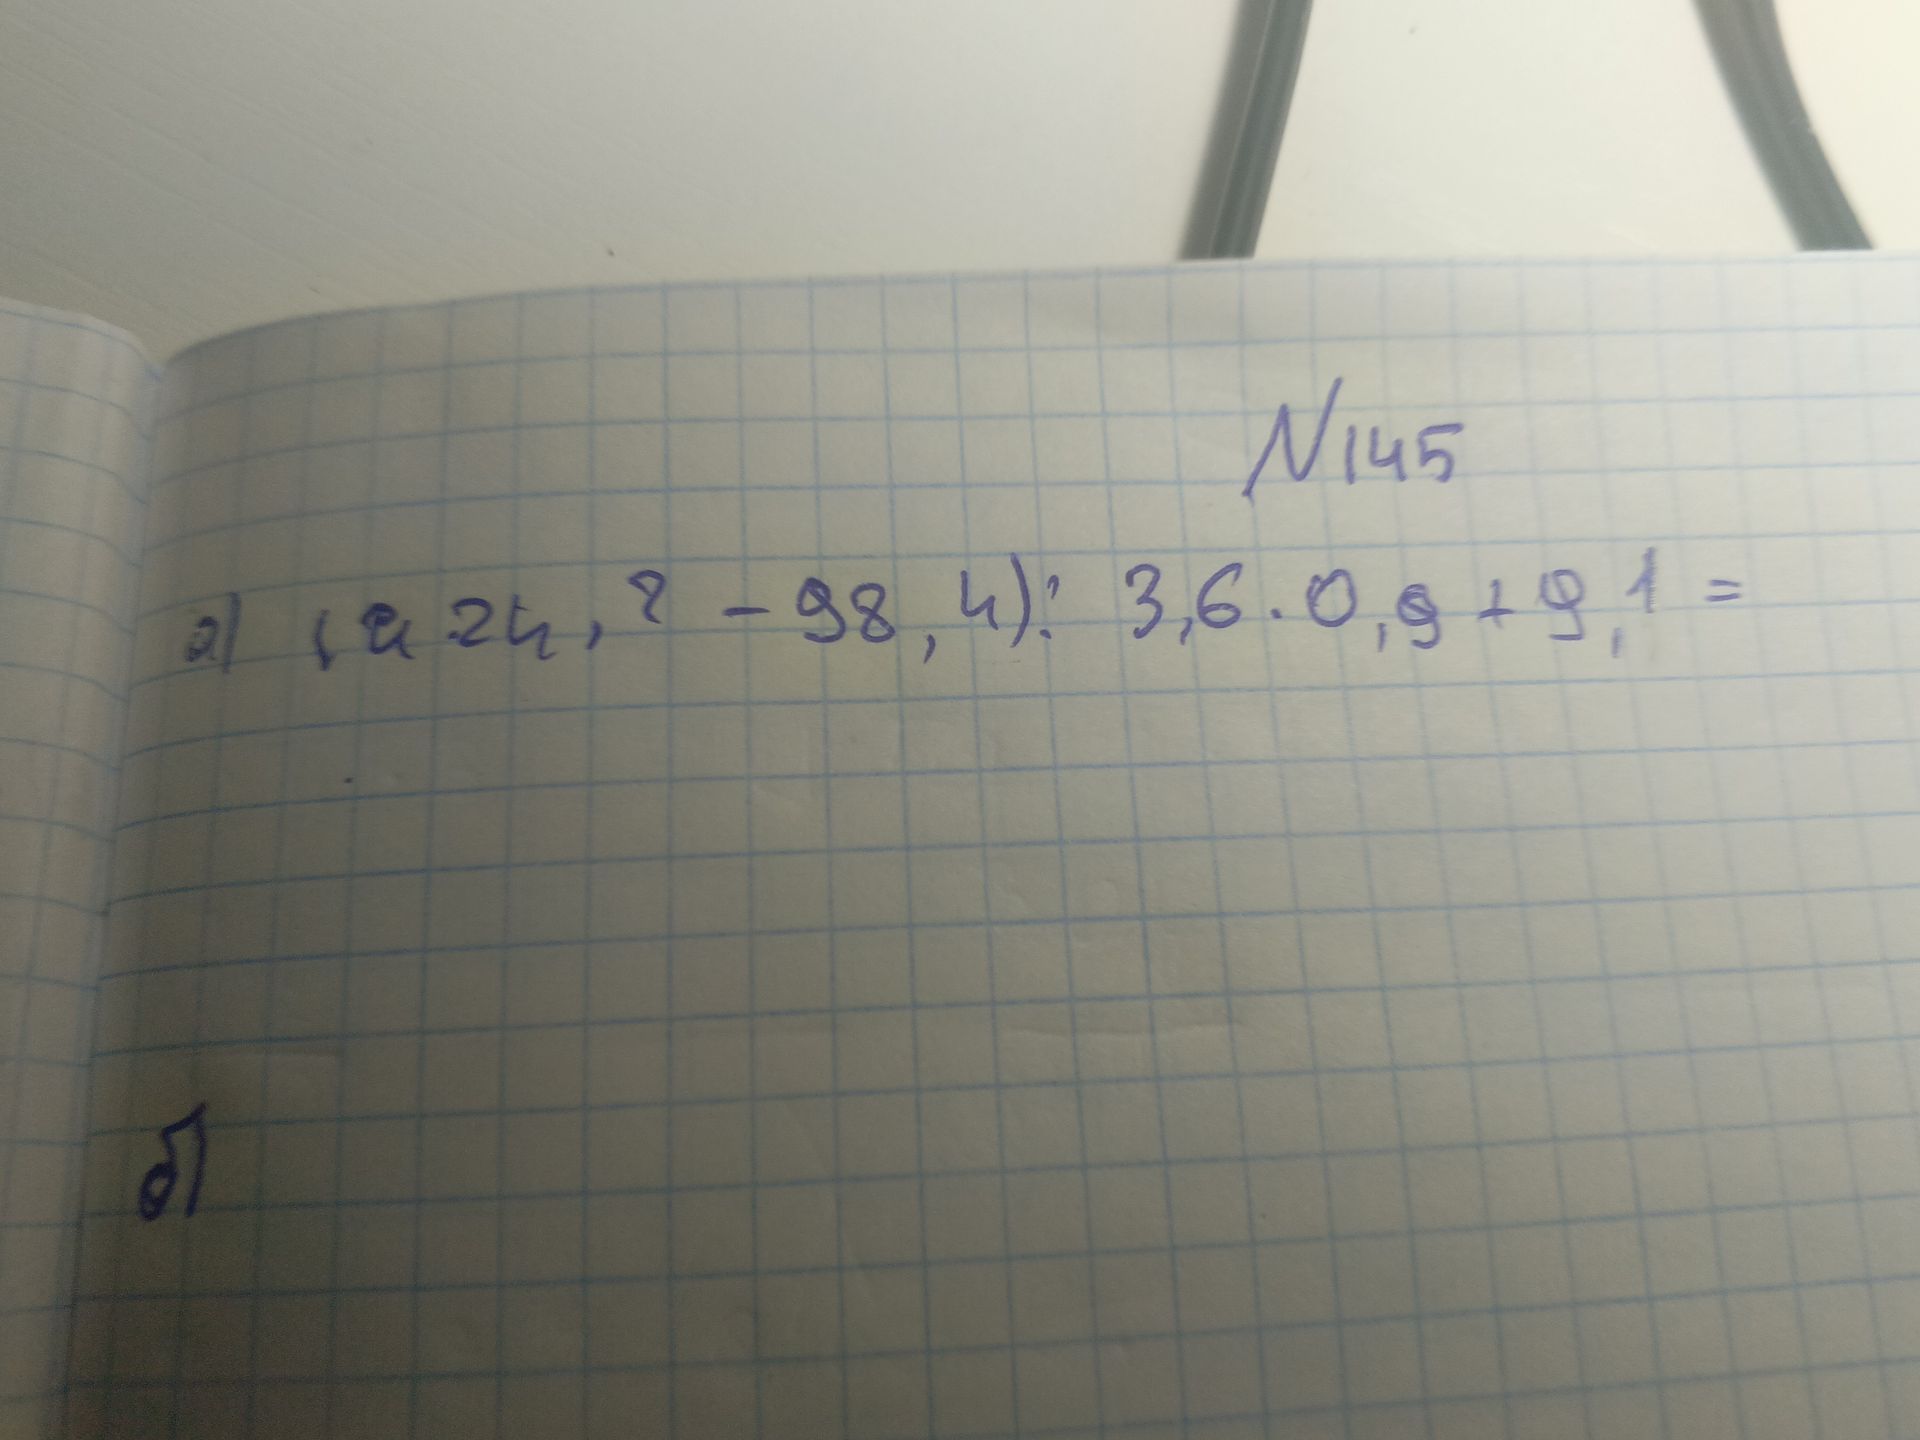 N145
а) (224,? - 98,4): 3,6 · 0,9 + 9,1 =
б)